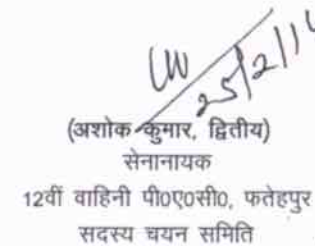 25/2/14
(अशोक कुमार, द्वितीय)
सेनानायक
12वीं वाहिनी पी0ए0सी0, फतेहपुर
सदस्य चयन समिति